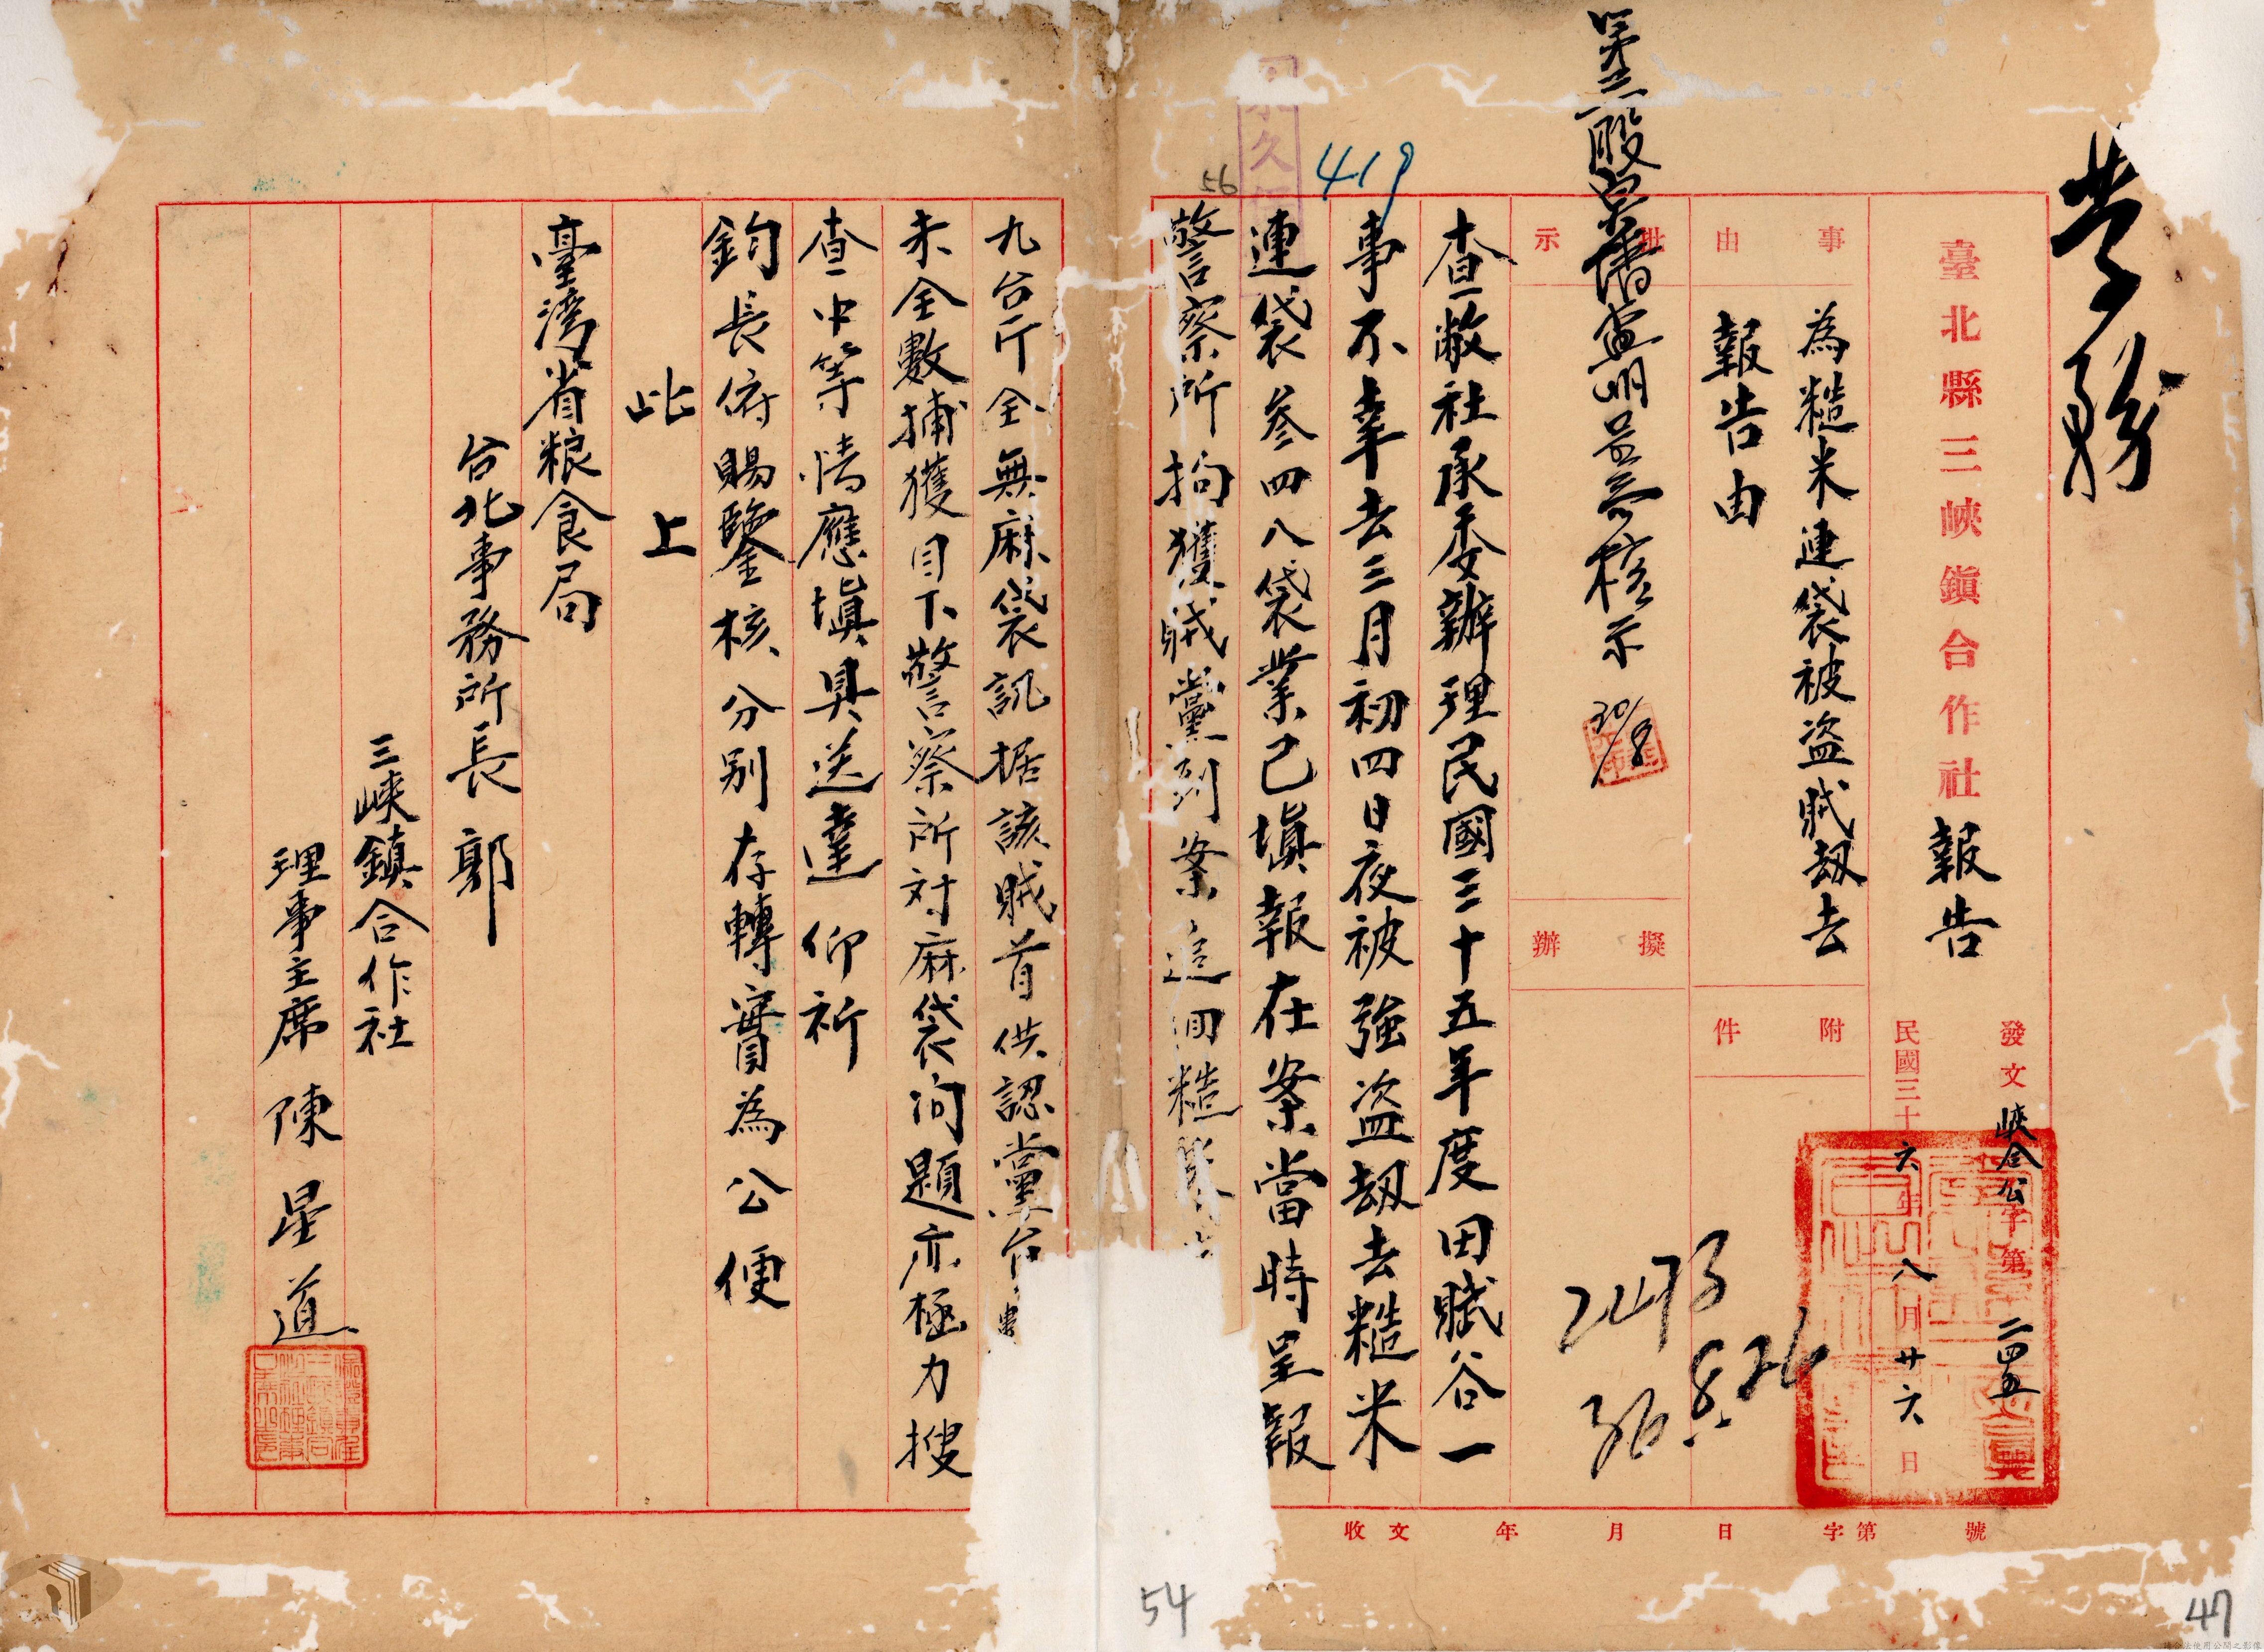 臺北縣三峽鎮合作社報告
發文峽合公字第二四五號
民國三十六年八月廿六日
事由
為糙米連袋被盗賊刼去
報告由
附件
批示
擬辦
核示
30/8
2473
8.26
36
查敝社承委辦理民國三十五年度田賦谷一
事不幸去三月初四日夜被強盗刼去糙米
連袋叁四八袋業已塡報在案當時呈報
警察所拘獲賊黨到案追囬糙
九台斤全無麻袋訊据該賊首供認黨
未全數捕獲目下警察所対麻袋问題亦極力搜
查中等情應塡具送達仰祈
鈞長俯賜鑒核分别存轉實為公便
此上
臺灣省粮食局
台北事務所長郭
三峽鎮合作社
理事主席陳星道
收文 年 月 日 字第 號
永久
419
56
54
47